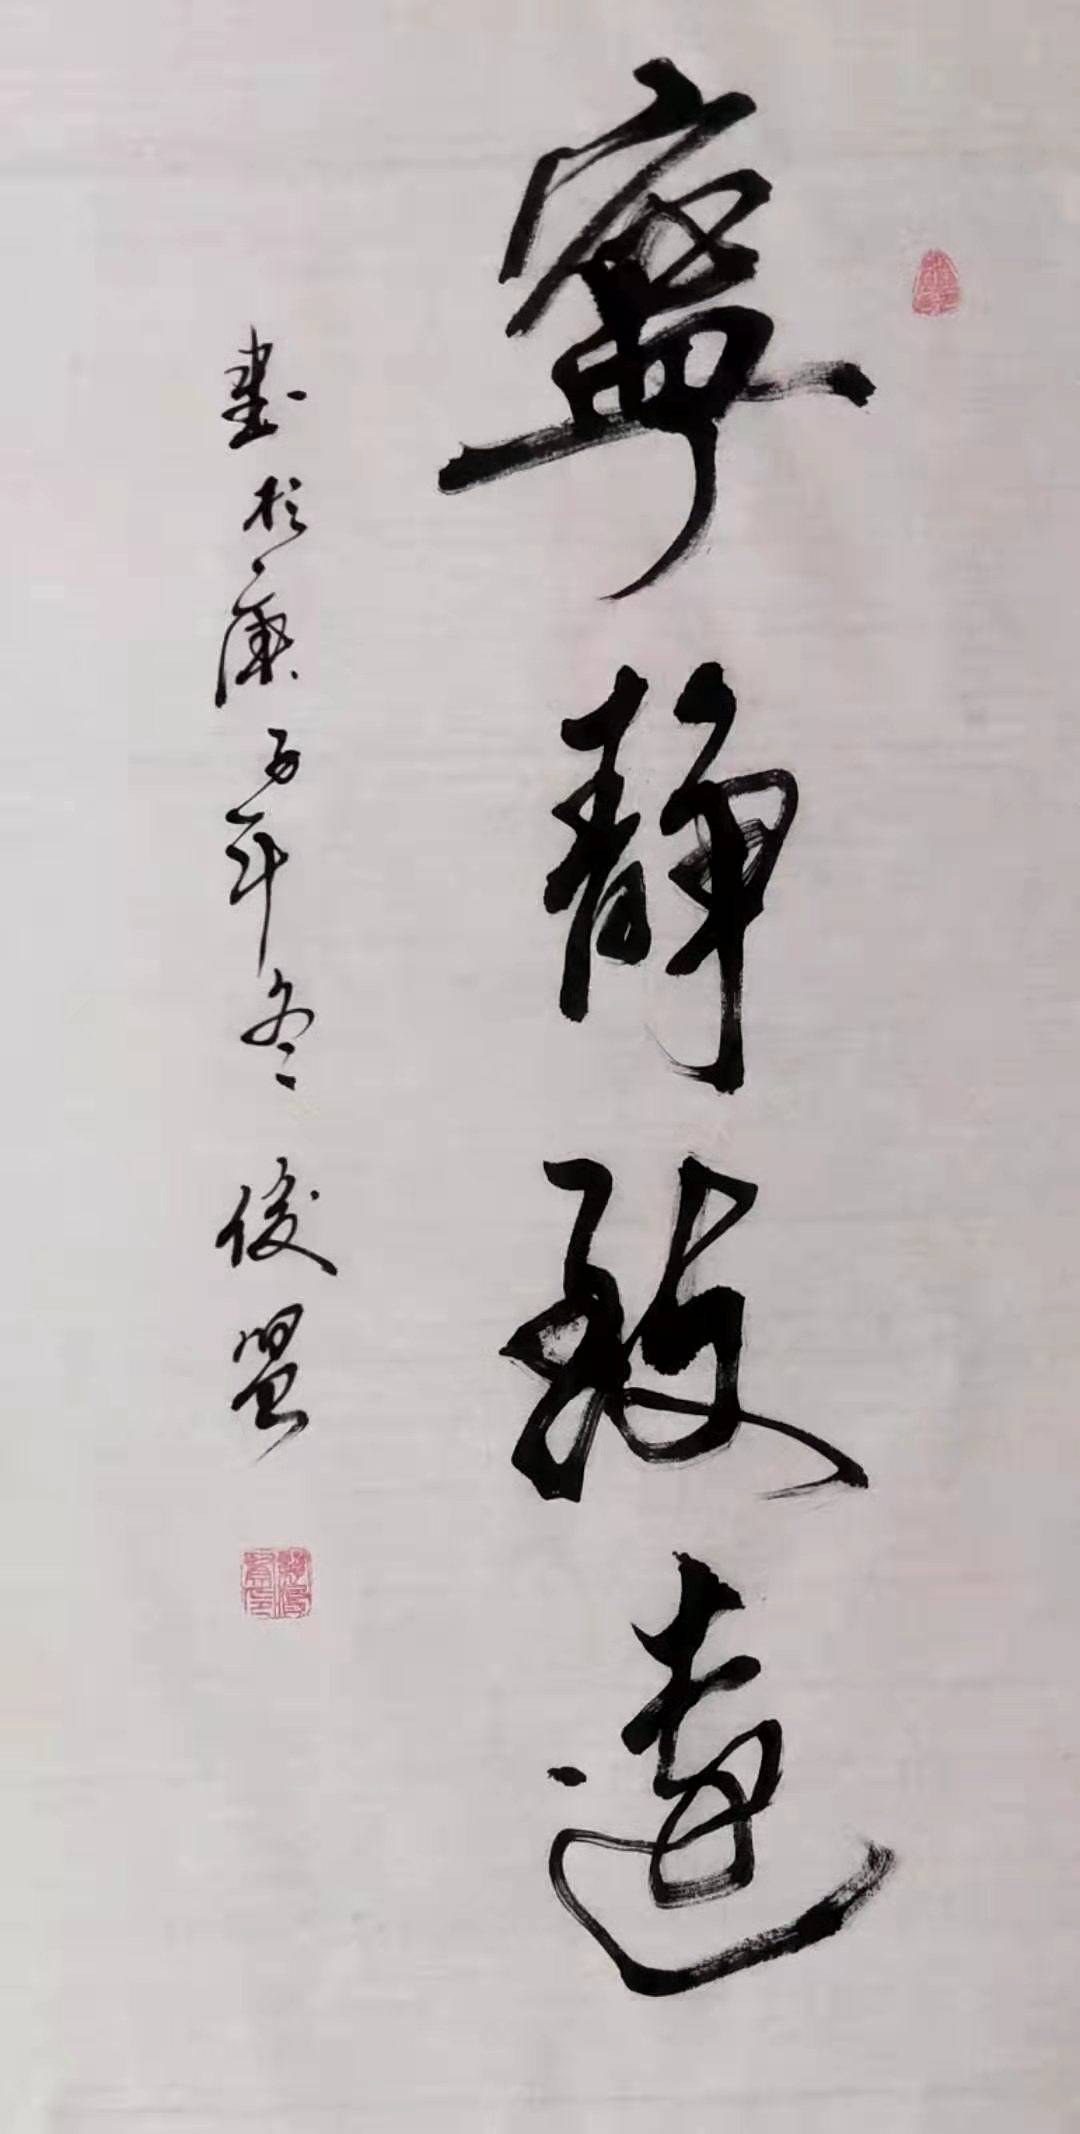 寧静致遠
書於庚子年冬 俊